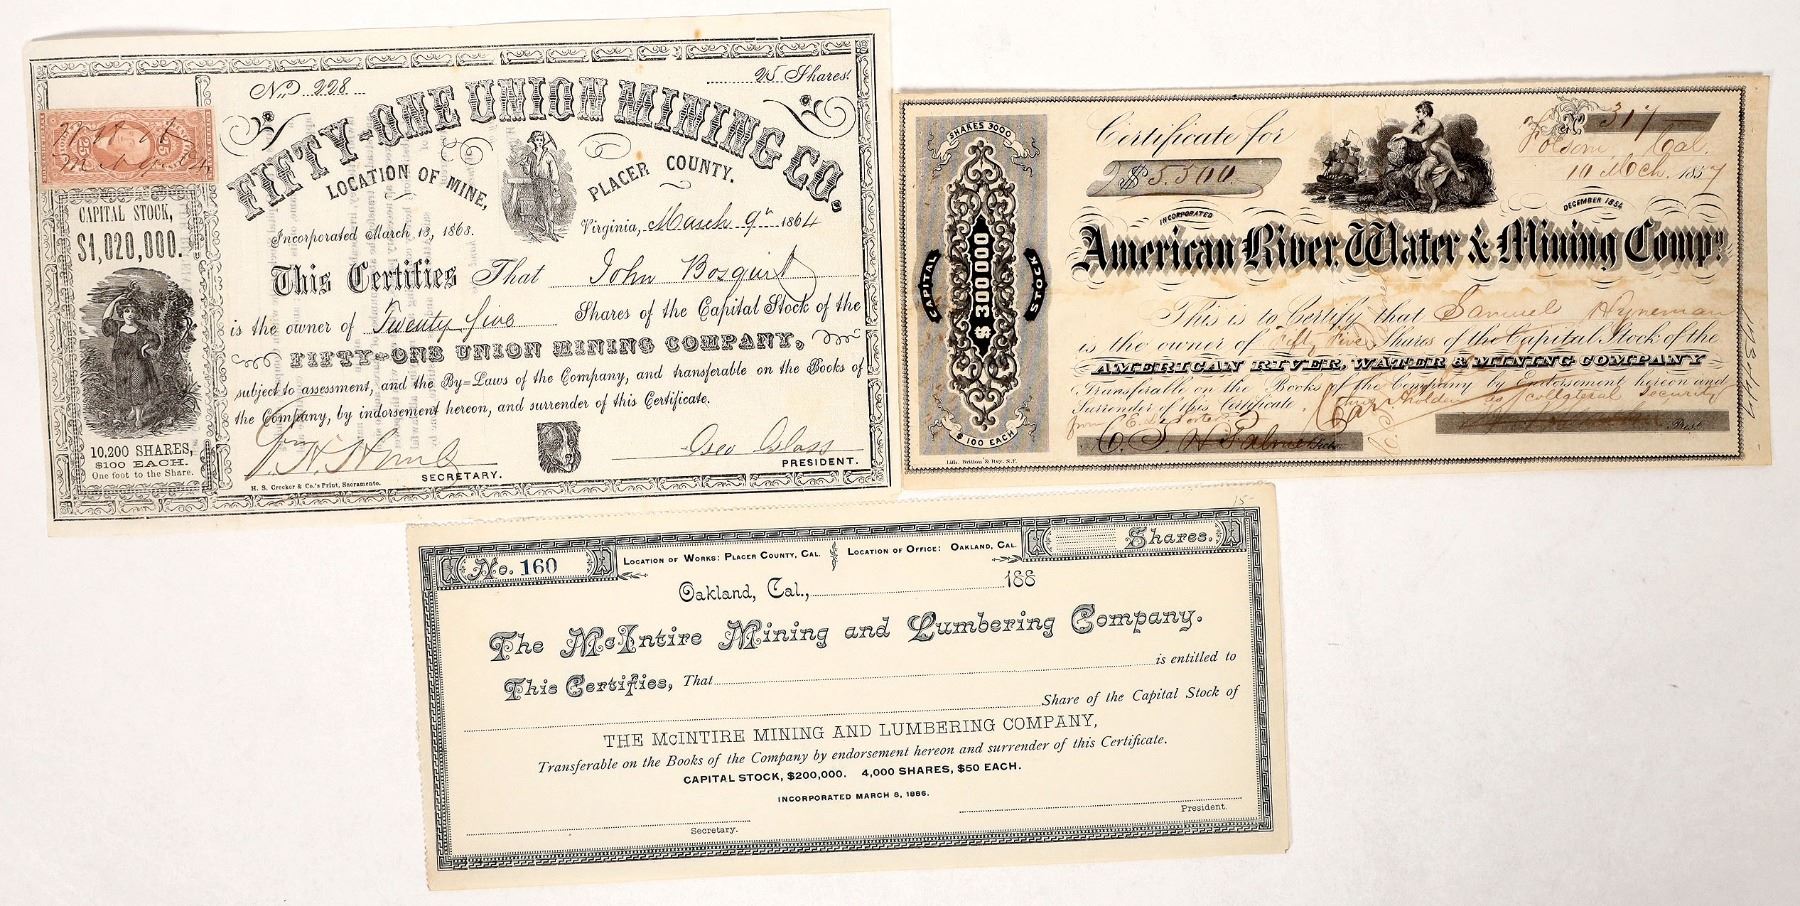 No. 228
25 Shares
FIFTY-ONE UNION MINING CO.
LOCATION OF MINE, PLACER COUNTY.
Incorporated March 13, 1863. Virginia, March 9th 1864
This Certifies That John Bosquit
is the owner of Twenty five Shares of the Capital Stock of the
FIFTY-ONE UNION MINING COMPANY,
subject to assessment, and the By=Laws of the Company, and transferable on the Books of
the Company, by indorsement hereon, and surrender of this Certificate.
SECRETARY.
Geo Glass
PRESIDENT.
H. S. Crocker & Co.'s Print, Sacramento.
25
CAPITAL STOCK,
$1,020,000.
10,200 SHARES,
$100 EACH.
One foot to the Share.
SHARES 3000
CAPITAL $300000 STOCK
$100 EACH
Lith. Britton & Rey, S.F.
Certificate for
$5,500
No. 317
Folsom, Cal.
10 Mch. 1857
INCORPORATED DECEMBER 1854
American River, Water & Mining Compy.
This is to Certify that Samuel Hyneman
is the owner of Fifty five Shares of the Capital Stock of the
AMERICAN RIVER, WATER & MINING COMPANY
Transferable on the Books of the Company by Endorsement hereon and
Surrender of this Certificate. as collateral security
from
Prest
15-
No. 160
LOCATION OF WORKS: PLACER COUNTY, CAL. LOCATION OF OFFICE: OAKLAND, CAL.
Shares.
Oakland, Cal., 188
The McIntire Mining and Lumbering Company.
This Certifies, That is entitled to
Share of the Capital Stock of
THE McINTIRE MINING AND LUMBERING COMPANY,
Transferable on the Books of the Company by endorsement hereon and surrender of this Certificate.
CAPITAL STOCK, $200,000. 4,000 SHARES, $50 EACH.
INCORPORATED MARCH 8, 1886.
Secretary.
President.